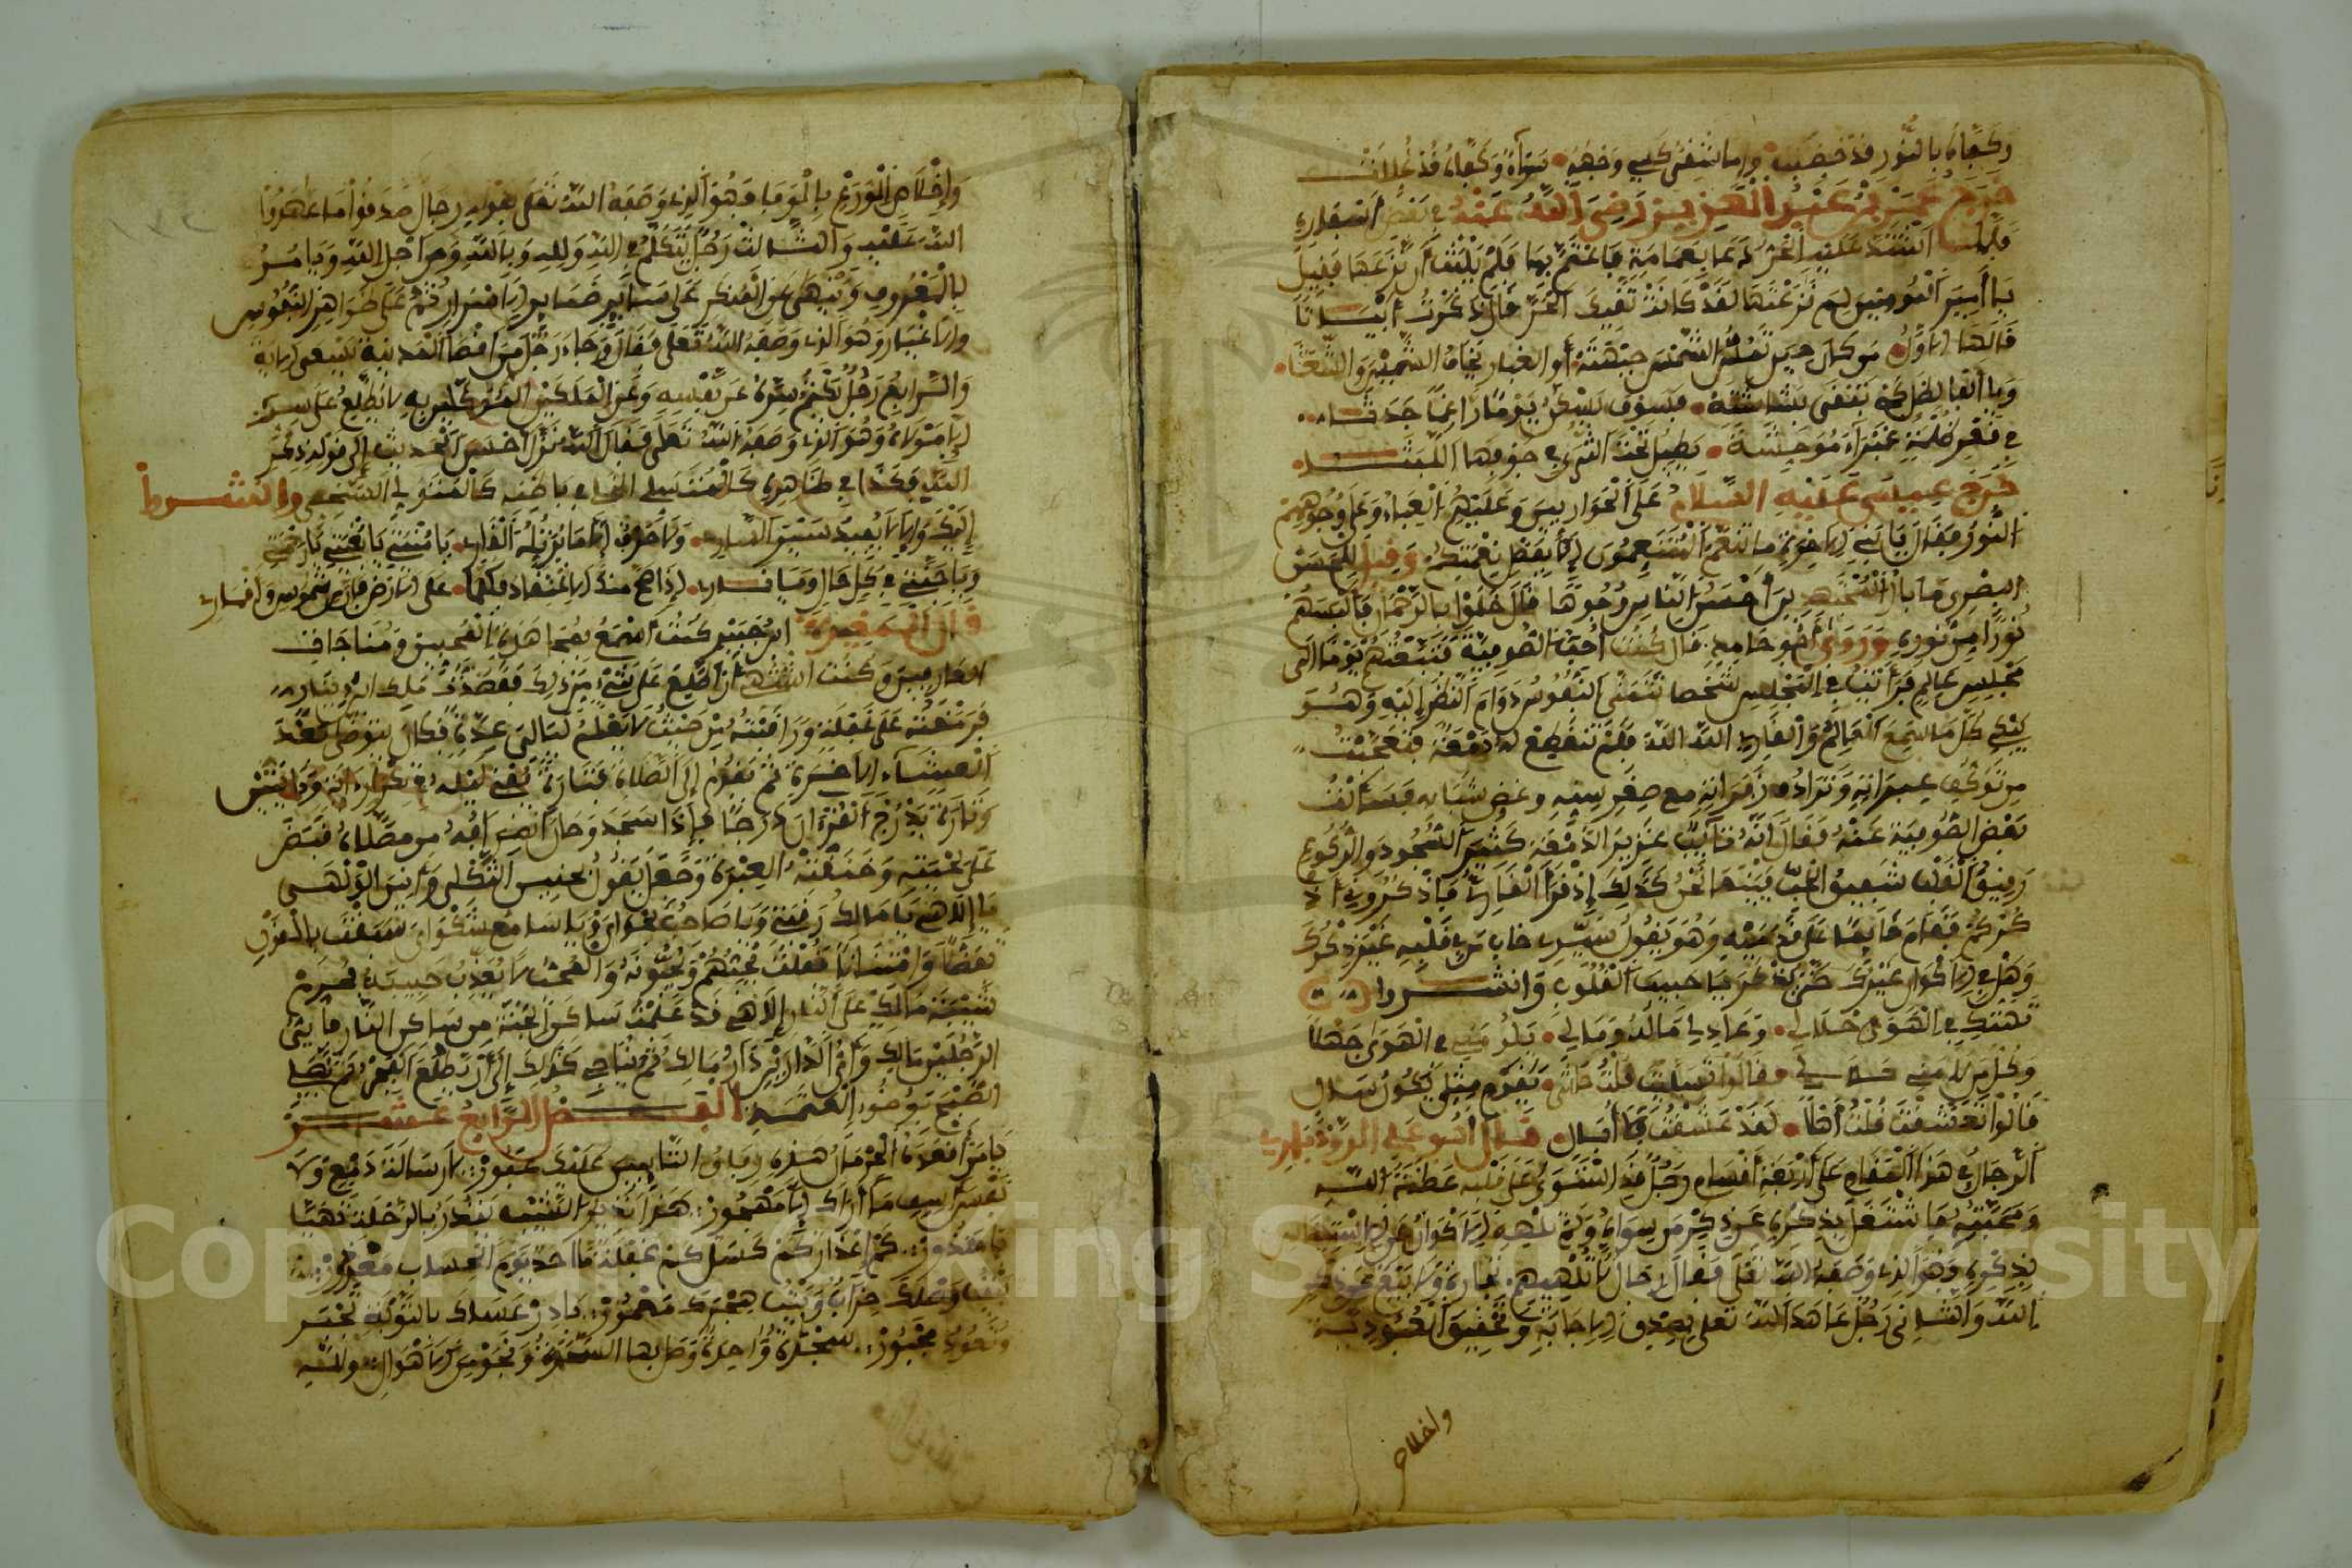 وكفاه بالنور قد خضبت وإما شفى كلبي وجهه سواه وكفاه قد غللت
خرج عمر بن عبد العزيز رضي الله عنه في بعض أسفاره
فلما اشتد عليه الحر دعا بعمامة فاعتم بها فلم يلبث أن نزعها فقيل
يا أمير المؤمنين لم نزعتها لقد كانت تقيك الحر قال ذكرت أبياتا
قالها الأول من كان حين تمس الشمس جبهته أو الغبار يخاف الشين والشعثا
ويألف الظل كي تبقى بشاشته فسوف يسكن يوما راغما جدثا
في قعر مظلمة غبراء موحشة يطيل تحت الثرى في جوفها اللبثا
خرج عيسى عليه السلام على الحواريين وعليهم العباء وعلى وجوههم
النور فقال يا بني الآخرة ما تنعم المتنعمون إلا بفضل نعمتكم وقيل للحسن
البصري ما بال المتهجدين أحسن الناس وجوها قال خلوا بالرحمن فألبسهم
نورا من نوره وروى أبو حامد قال كنت أحب الصوفية فتبعتهم يوما إلى
مجلس عالم فرأيت في المجلس شخصا تتمنى النفوس دوام النظر إليه وهو
يبكي كل ما سمع العالم والقارئ الله الله فلم تنقطع له دمعة فتعجبت
من توكف عبراته وترادف زفراته مع صغر سنه وغض شبابه فسألت
بعض الصوفية عنه فقال إنه تائب غزير الدمعة كثير السجود والركوع
رقيق القلب شديد الحب فبينما نحن كذلك إذ قرأ القارئ فاذكروني أذ
كركم فقام قائما على قدميه وهو يقول سيدي خاب من في قلبه غير ذكرك
وهل في الأكوان غيرك حتى يذكر يا حبيب القلوب وأنشدوا
تهتكي في الهوى حلا لي وعاذلي ما له وما لي يلومني في الهوى جهلا
وكل من لامني خلا لي قالوا تسليت قلت حاشى مغرم مثلي يكون سال
قالوا تعشقت قلت أهلا لقد عشقت فلا أسال قال أبو علي الروذباري
الرجال في هذا المقام على أربعة أقسام رجل قد استوى على قلبه عظمة الله
ومحبته فاشتغل بذكره عن ذكر من سواه ولم تلهه الأكوان عن الاستئناس
بذكره وهو الذي وصفه الله تعالى فقال رجال لا تلهيهم تجارة ولا بيع عن ذكر
الله والثاني رجل عاهد الله تعالى بصدق الإجابة وتحقيق العبودية
وإخلاص
وإخلاص الورع بالوفا وهو الذي وصفه الله تعالى بقوله رجال صدقوا ما عاهدوا
الله عليه والثالث رجل يتكلم في الله ولله وبالله ومن أجل الله ويأمر
بالمعروف وينهى عن المنكر على سائر ضمائر الأسرار ثم على ظواهر النفوس
والأغيار وهو الذي وصفه الله تعالى فقال وجاء رجل من أقصا المدينة يسعى الآية
والرابع رجل يكتم سره عن نفسه وعن الملكين الموكلين به لا يطلع على سره
إلا مولاه وهو الذي وصفه الله تعالى فقال الله نزل أحسن الحديث إلى قوله ذكر
الله فكذا في ظاهره كالمتسلي الخا في باطنه كالمتولي الشجي وأنشدوا
إليك وإلا لا يفيد سير الساري ولا حرف إلا ما يرتله القاري يا منيتي يا بغيتي يا رحمتي
ويا جنتي في كل حال ويا ناري إذا صح منك الاعتقاد فكلما على الأرض فإن شموس وأقمار
قال المغيرة ابن حبيب كنت أسمع بمجاهدة المحبين ومناجاة
العارفين وكنت أشتهي أن أطلع على شيء من ذلك فقصدت ملك ابن دينار
فرمقته على غفلة وراقبته من حيث لا يعلم ليالي عدة فكان يتوضأ بعد
العشاء الأخيرة ثم يقوم إلى الصلاة فتارة يفني ليله في تكرار آية أو آيتين
وتارة يدرج القرآن درجا فإذا سجد وحان انصرافه من مصلاه قبض
على لحيته وخنقته العبرة وجعل يقول بحنين الثكلى وأنين الولهى
يا إلاهي يا مالك رقي ويا صاحب نجواي ويا سامع شكواي سبقت بالقول
تفضلا وامتنانا فقلت يحبهم ويحبونه والمحب لا يعذب حبيبه فحرم
شيبة مالك على النار إلاهي قد علمت ساكن الجنة من ساكن النار فأي
الرجلين مالك وأي الدارين دار مالك ثم يناجي كذلك إلى أن يطلع الفجر فيصلي
الصبح بوضوء العتمة الفصل الرابع عشر
يا من أقعده الحرمان هذه رفاق التائبين عليك عبور لا رسالة دمع ولا
نفس أسف ما أراك إلا مهجور هذا نذير الشيب ينذر بالرحلة تهيأ
يا معذور كم أعذار كم كسل كم غفلة ما أحد يوم الحساب معذور
بيت وصلك خراب وبيت هجرك معمور بادر عساك بالتوبة تجبر
وتعود مجبور سجدة واحدة وصل بها السحرة ونجوا من الأهوال ولله
Copyright © King Saud University
1957